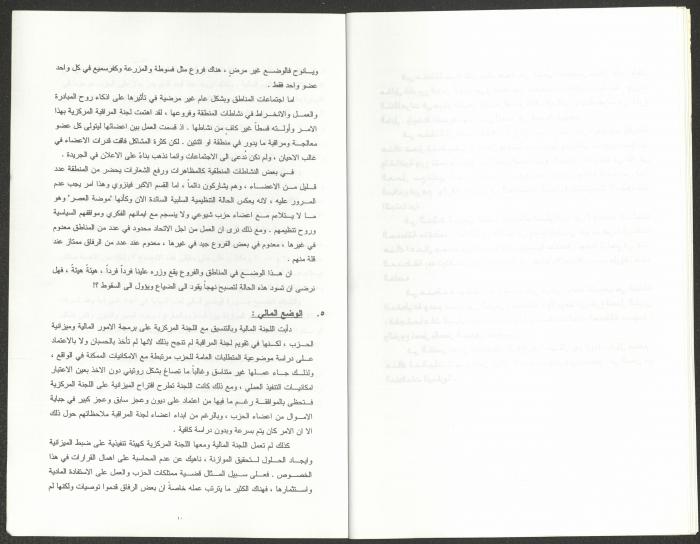 ويـانوح فالوضـع غير مرضٍ ، هناك فروع مثل فسوطة والمزرعة وكفرسميع في كل واحد
عضو واحد فقط .
اما اجتماعات المناطق وبشكل عام غير مرضية في تأثيرها على اذكاء روح المبادرة
والعمـل والانخـراط في نشاطات المنطقة وفروعها ، لقد اهتمت لجنة المراقبة المركزية بهذا
الامـر وأولـته قسطاً غير كافٍ من نشاطها . اذ قسمت العمل بين اعضائها ليتولى كل عضو
معالجـة ومراقبة ما يدور في منطقة او اثنتين . لكن كثرة المشاكل فاقت قدرات الاعضاء في
غالب الاحيان ، ولم تكن تُدعى الى الاجتماعات وانما تذهب بناءً على الاعلان في الجريدة .
فـي بعض النشاطات المنطقية كالمظاهرات ورفع الشعارات يحضر من المنطقة عدد
قلـيل مـن الاعضـاء ، وهم يشاركون دائماً ، اما القسم الاكبر فينزوي وهذا امر يجب عدم
المـرور عليه ، لانه يعكس الحالة التنظيمية السلبية السائدة الان وكأنها "موضة العصر" وهو
مـا لا يـتلاءم مـع اعضاء حزب شيوعي ولا ينسجم مع ايمانهم الفكري وموافقهم السياسية
وروح تنظيمهم . ومع ذلك نرى ان العمل من اجل الاتحاد محدود في عدد من المناطق معدوم
في غيرها ، معدوم في بعض الفروع جيد في غيرها ، معدوم عند عدد من الرفاق ممتاز عند
قلة منهم .
ان هـذا الوضـع في المناطق والفروع يقع وزره علينا فرداً فرداً ، هيئةً هيئةً ، فهل
نرضى ان تسود هذه الحالة لتصبح نهجاً يقود الى الضياع ويؤول الى السقوط ؟!
٥. الوضع المالي :
دأبت اللجنة المالية وبالتنسيق مع اللجنة المركزية على برمجة الامور المالية وميزانية
الحـزب ، لكـنها في تقويم لجنة المراقبة لم تنجح بذلك لانها لم تأخذ بالحسبان ولا بالاعتماد
علـى دراسة موضوعية المتطلبات العامة للحزب مرتبطة مع الامكانيات الممكنة في الواقع ،
ولذلـك جـاء عمـلها غير متناسق وغالباً ما تصاغ بشكل روتيني دون الاخذ بعين الاعتبار
امكانيـات التنفيذ العملي ، ومع ذلك كانت اللجنة تطرح اقتراح الميزانية على اللجنة المركزية
فـتحظى بالموافقـة رغـم ما فيها من اعتماد على ديون وعجز سابق وعجز كبير في جباية
الامـوال من اعضاء الحزب ، وبالرغم من ابداء اعضاء لجنة المراقبة ملاحظاتهم حول ذلك
الا ان الامر كان يتم بسرعة وبدون دراسة كافية .
كذلك لم تعمل اللجنة المالية ومعها اللجنة المركزية كهيئة تنفيذية على ضبط الميزانية
وايجـاد الحـلول لـتحقيق الموازنة ، ناهيك عن عدم المحاسبة على اهمال القرارات في هذا
الخصـوص . فعـلى سبيل المـثال قضـية ممتلكات الحزب والعمل على الاستفادة المادية
واسـتثمارها ، فهناك الكثير ما يترتب عمله خاصةً ان بعض الرفاق قدموا توصيات ولكنها لم
١٠